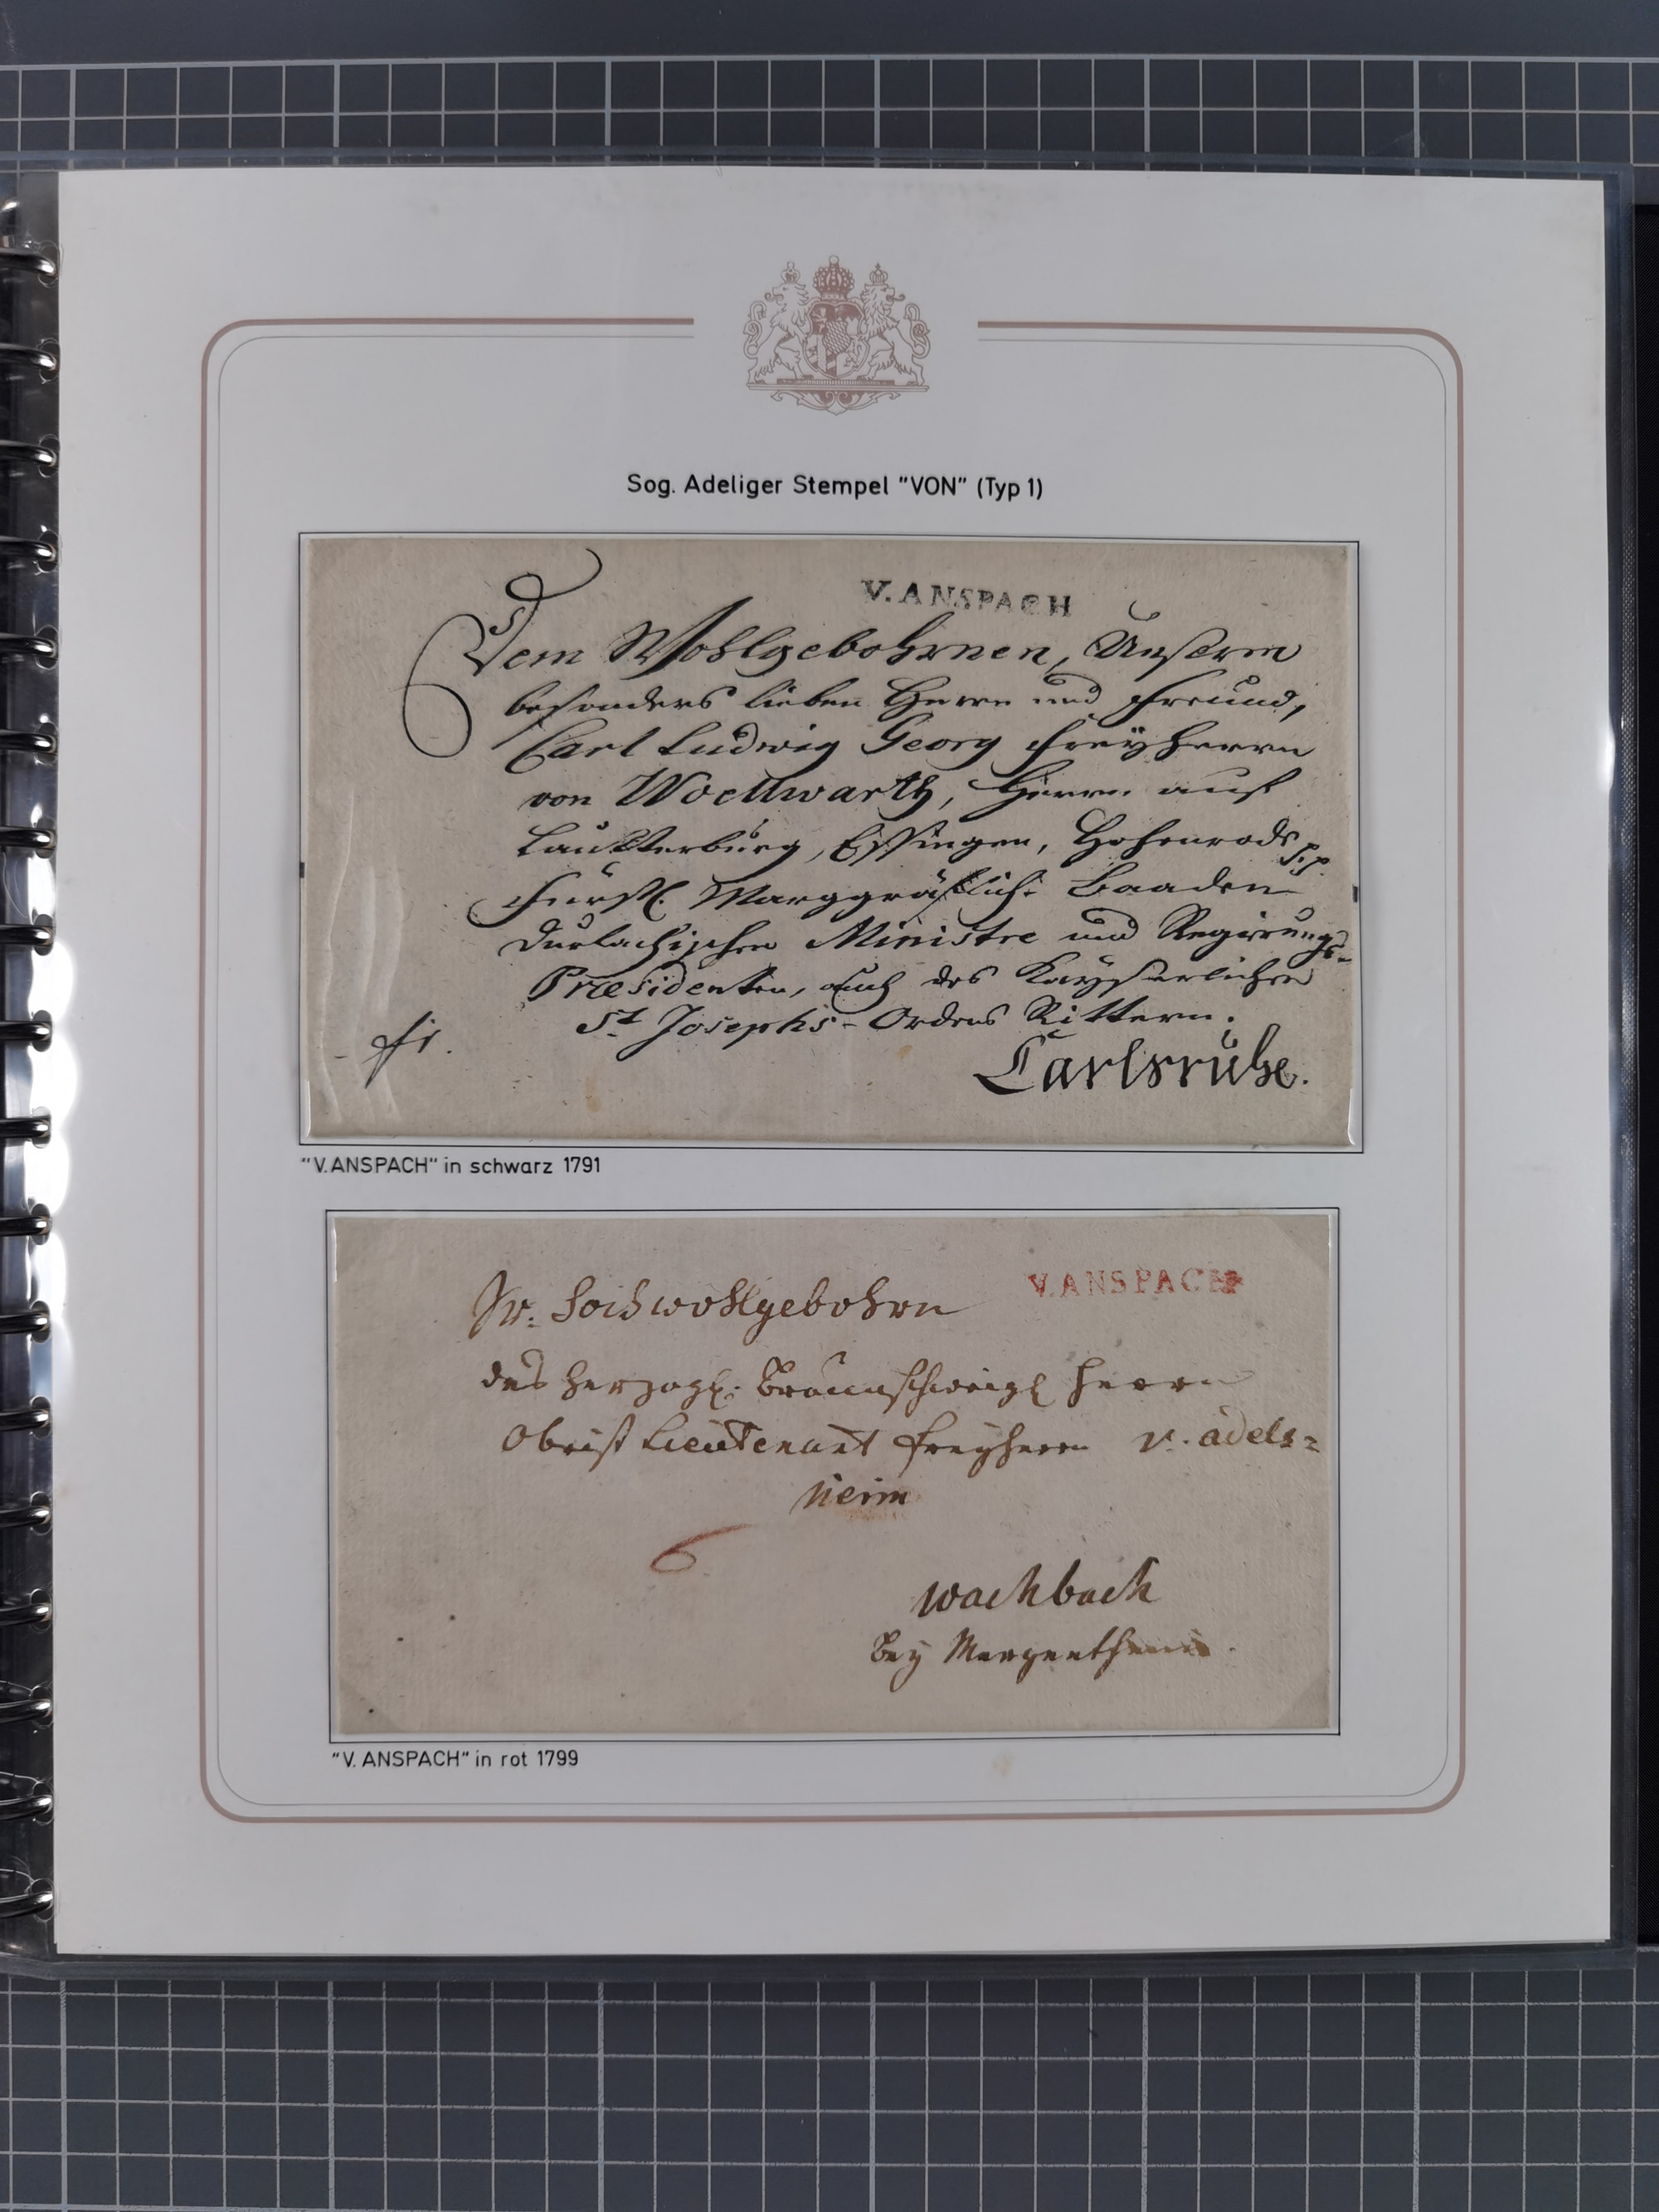 Sog. Adeliger Stempel "VON" (Typ 1)
V. ANSPACH
Dem Wohlgebohrnen, Unserm
besonders lieben Herrn und Freund,
Carl Ludwig Georg Freÿherrn
von Woellwarth, Herrn auf
Lautterburg, Essingen, Hohenrods p.p.
Fürstl. Marggräflich: Baaden
Durlachischen Ministre und Regierungs-
Præsidenten, auch des Kaÿserlichen
St. Josephs-Ordens Rittern.
Carlsruhe.
"V. ANSPACH" in schwarz 1791
V. ANSPACH
Sr: Hochwohlgebohrn
des Herzogl: Braunschweigl Herrn
Obrist Lieutenant Freyherrn v. adels=
heim
6
wachbach
bey Mergentheim.
"V. ANSPACH" in rot 1799